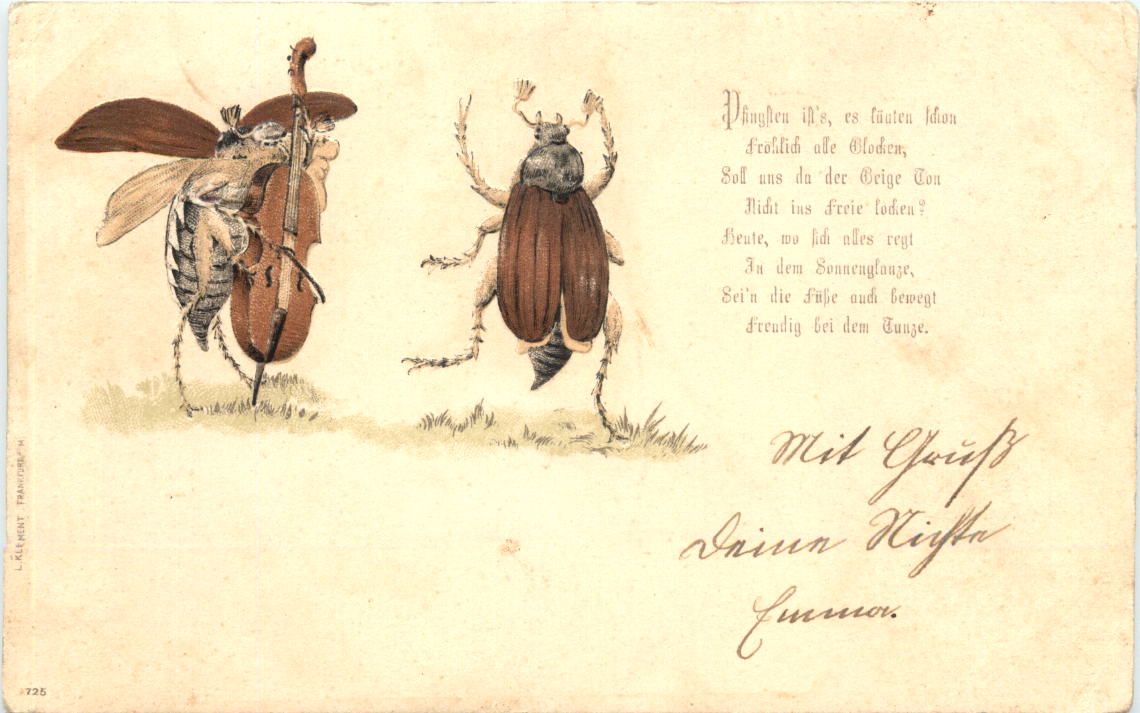 Pfingsten ist's, es läuten schon
Fröhlich alle Glocken,
Soll uns da der Geige Ton
Nicht ins Freie locken?
Heute, wo sich alles regt
In dem Sonnenglanze,
Sei'n die Füße auch bewegt
Freudig bei dem Tanze.
Mit Gruß
Deine Nichte
Emma.
L. KLEMENT FRANKFURT a/M.
725